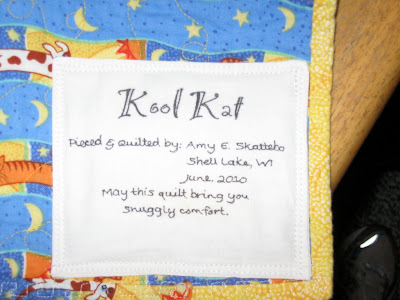 Kool Kat
Pieced & Quilted by: Amy E. Skattebo
Shell Lake, WI
June, 2010
May this quilt bring you
snuggly comfort.